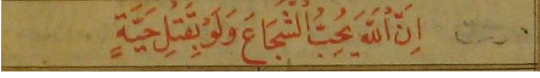 اِنَّ اللَّهَ يُحِبُّ الشُّجَاعَ وَلَوْ بِقَتْلِ حَيَّةٍ